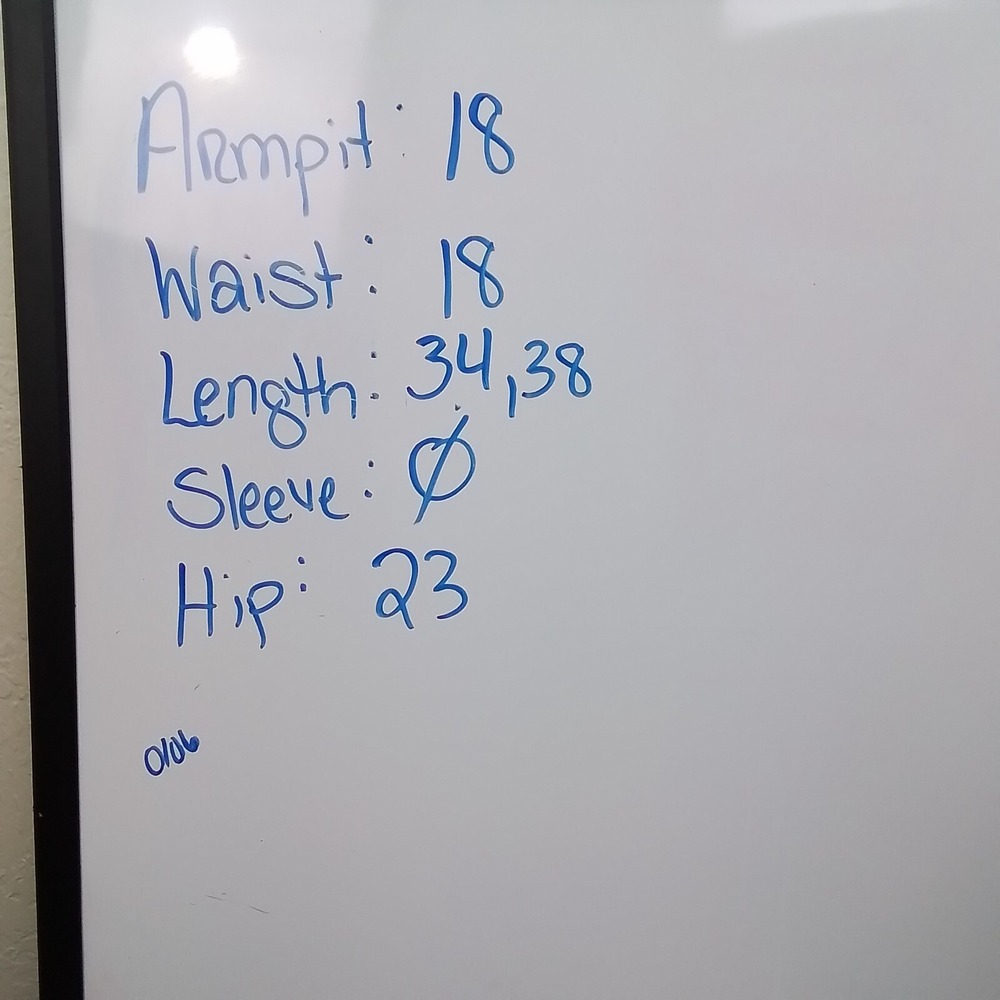 Armpit: 18
Waist: 18
Length: 34,38
Sleeve: Ø
Hip: 23
0106